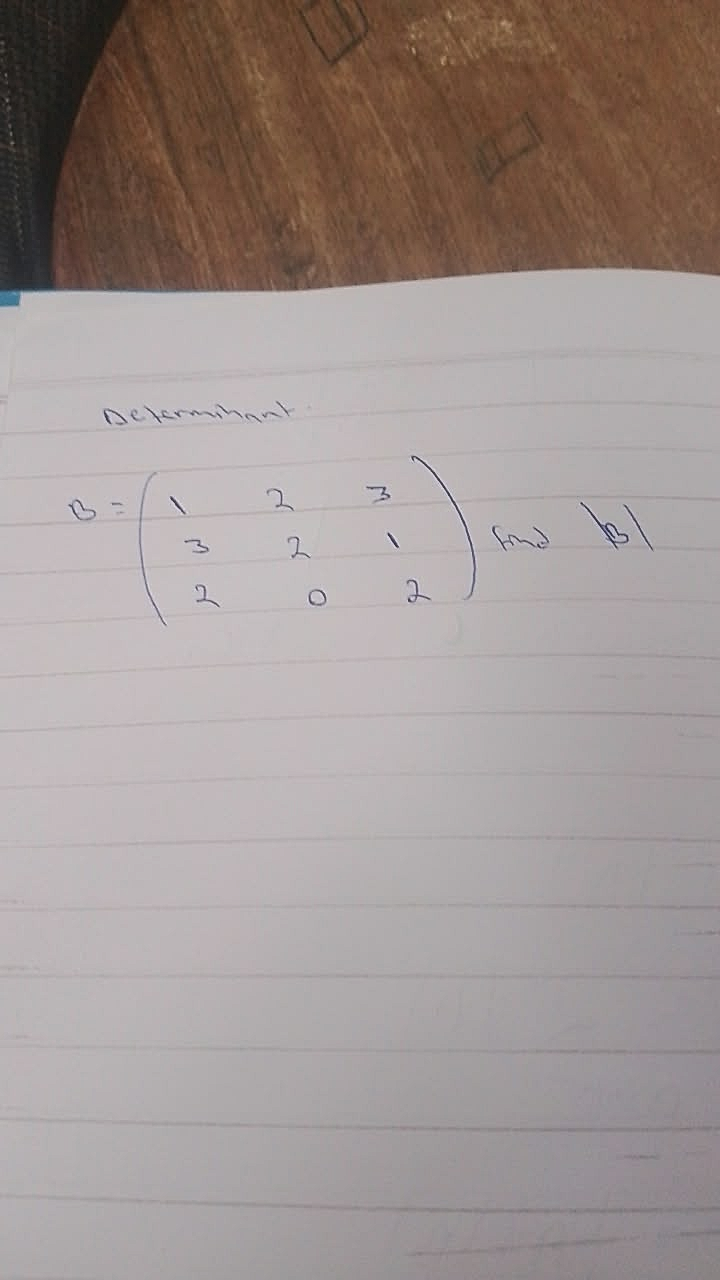 Determinant.
B = ( 1 2 3
3 2 1
2 0 2 ) find |B|